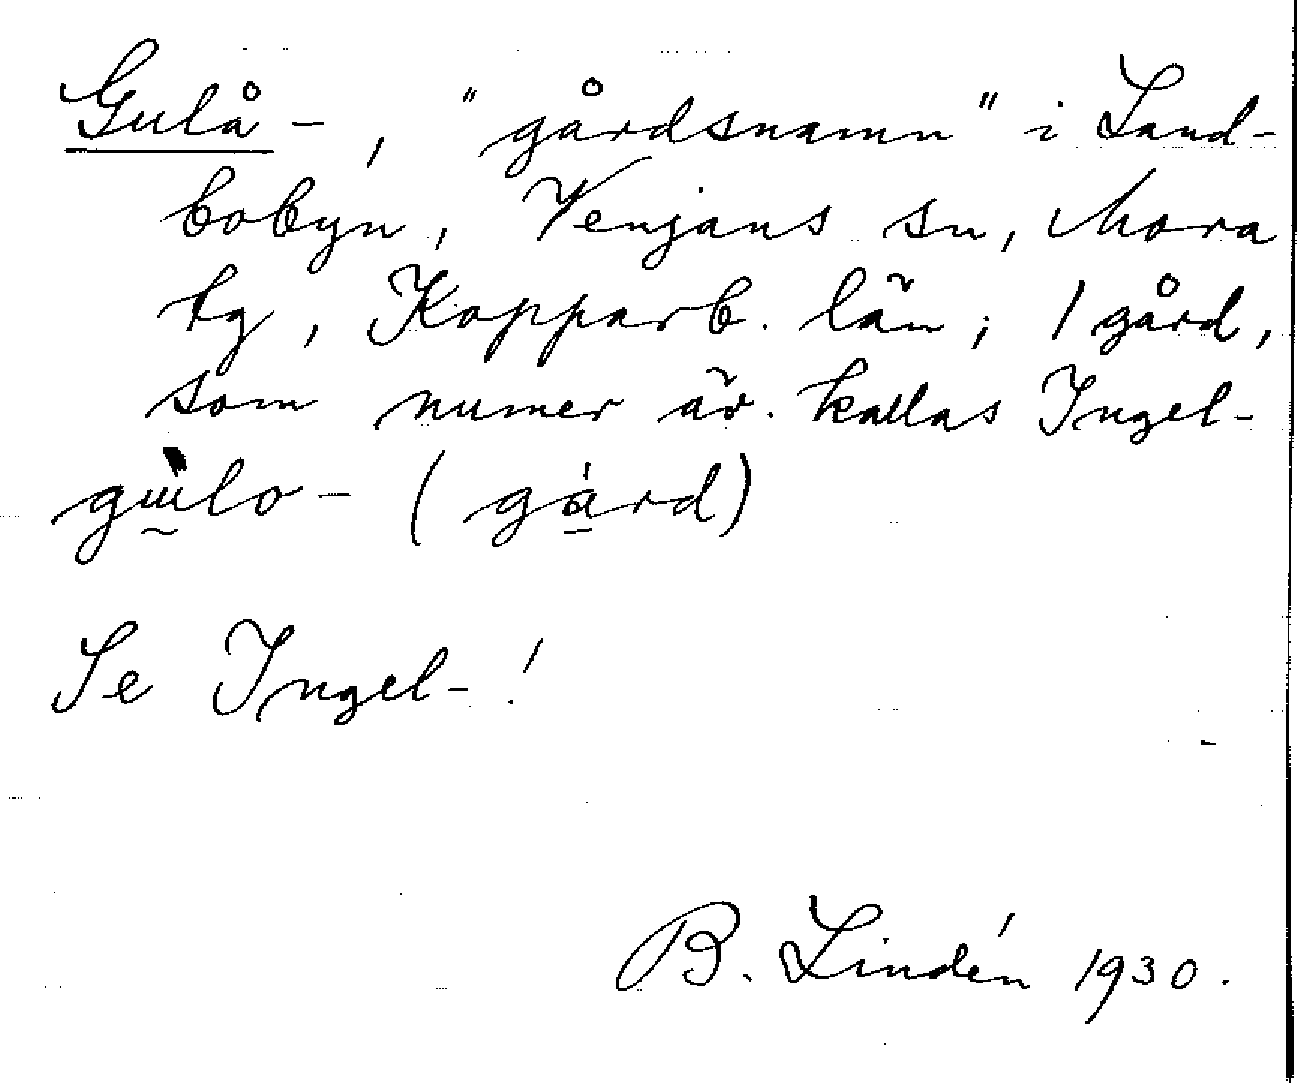 Gulå-, "gårdsnamn" i Land-
bobyn, Venjans sn, Mora
tg, Kopparb. län; 1 gård,
som numer äv. kallas Ingel-
gṵlo- (gård)
Se Ingel-!
B. Lindén 1930.